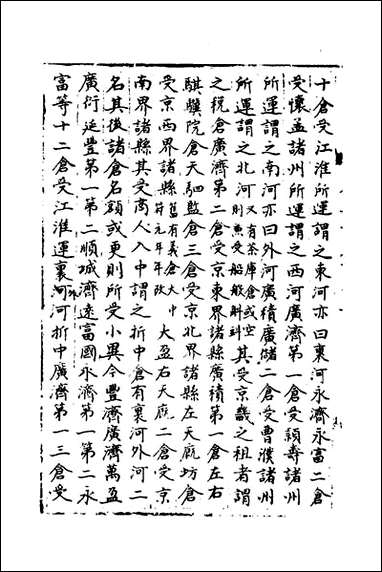 十倉受江淮所運謂之東河亦曰裏河永濟永富二倉
受懷孟諸州所運謂之西河廣濟第一倉受穎壽諸州
所運謂之南河亦曰外河廣積廣儲二倉受曹濮諸州
所運謂之北河又有茶庫倉或空則兼受船般斛㪷其受京畿之租者謂
之稅倉廣濟第二倉受京東界諸縣廣積第一倉左右
騏驥院倉天駟監倉三倉受京北界諸縣左天廐坊倉
受京西界諸縣舊有義倉大中祥符元年年改大盈右天廐二倉受京
南界諸縣其受商人入中謂之折中倉有裏河外河二
名其後諸倉名額或更則所受小異今豐濟廣濟萬盈
廣衍延豐第一第二順城濟遠富國永濟第一第二永
富等十二倉受江淮運裏河外河折中廣濟第一三倉受